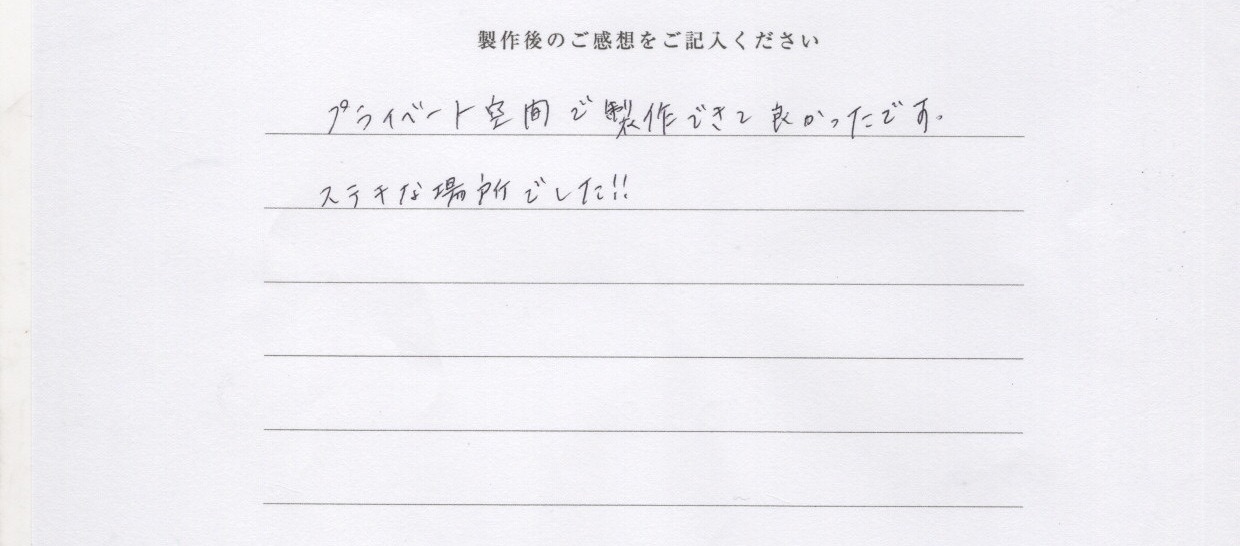 製作後のご感想をご記入ください
プライベート空間で製作できて良かったです。
ステキな場所でした!!